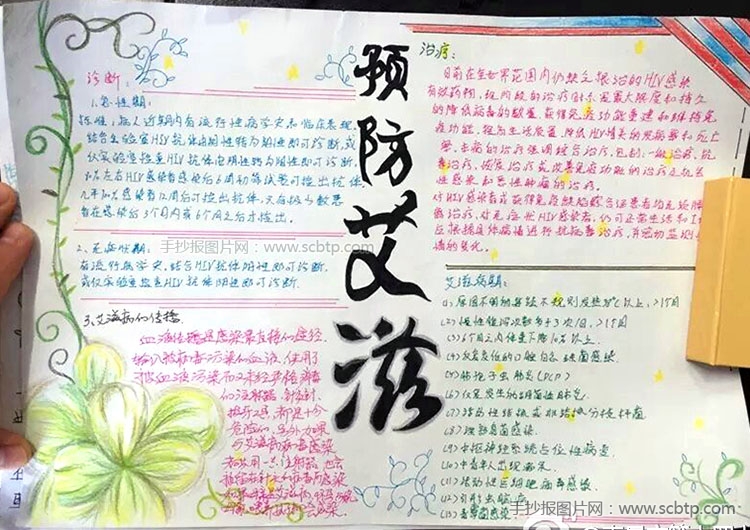 预防艾滋
诊断:
1.急性期:
病人近期内有流行病学史和临床表现,
结合实验室HIV抗体由阴性转为阳性即可诊断,或
仅实验室检查HIV抗体由阴性转为阳性即可诊断.
80%左右HIV感染者感染后6周初筛试验可检出抗体,
几乎100%感染者12周后可检出抗体,只有极少数患
者在感染后3个月内或6个月后才检出.
2、无症状期:
有流行病学史,结合HIV抗体阳性即可诊断,
或仅实验室检查HIV抗体阳性即可诊断.
3、艾滋病的传播
血液传播是感染最直接的途径.
输入被病毒污染的血液,使用了
被血液污染而又未经严格消毒
的注射器、针灸针、
拔牙工具,都是十分
危险的.另外如果
与艾滋病病毒感染
者共用一只注射器,也会
治疗:
目前在全世界范围内仍缺乏根治的HIV感染
有效药物,现阶段的治疗目标是最大限度和持久
的降低病毒的载量,获得免疫功能重建和维持免
疫功能,提高生活质量,降低HIV相关的发病率和死亡
率,本病的治疗强调综合治疗,包括:一般治疗,抗病
毒治疗,恢复治疗或改善免疫功能的治疗及机会
性感染和恶性肿瘤的治疗.
对HIV感染者或获得性免疫缺陷综合征患者均无须隔
离治疗,对无症状HIV感染者,仍可正常生活和工作
应根据具体病情进行抗病毒治疗,并密切监测病
情的变化.
艾滋病期:
(1)原因不明的持续不规则发热38℃以上,>1个月
(2)慢性腹泻次数多于3次/日,>1个月
(3)6个月之内体重下降10%以上.
(4)反复发作的口腔白色念菌感染
(5)肺孢子虫肺炎(PCP)
(6)反复发生的细菌性肺炎
(7)活动性结核或非结核分枝杆菌
(8)深部真菌感染.
(9)中枢神经系统占位性病变
(10)中青年人出现痴呆.
(11)活动性巨细胞病毒感染
(12)弓形虫脑病.
手抄报图片网:www.scbtp.com
手抄报图片网:www.scbtp.com